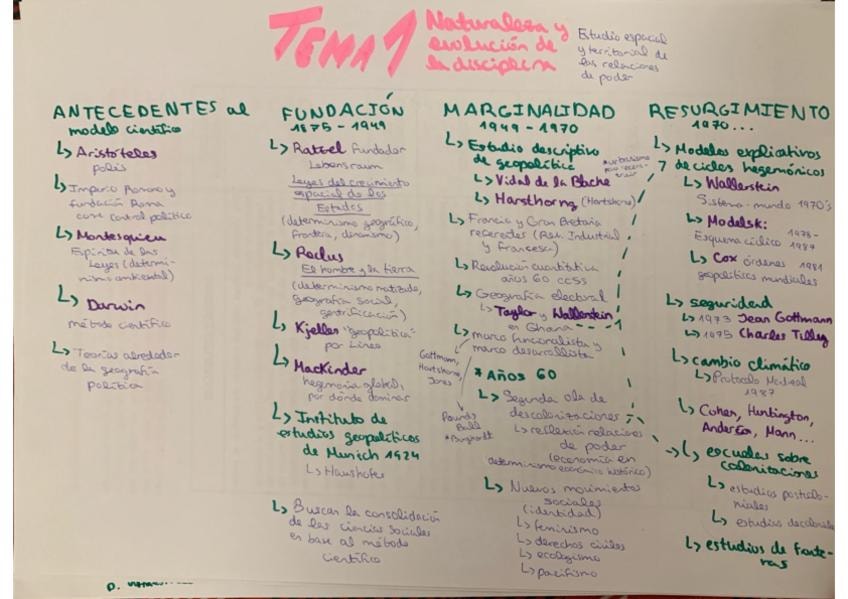 TEMA 1
Naturaleza y
evolución de
la disciplina
Estudio espacial
y territorial de
las relaciones
de poder
ANTECEDENTES al
modelo científico
↳ Aristóteles
polis
↳ Imperio Romano y
fundación Roma
como control político
↳ Montesquieu
Espíritu de las
Leyes (determi-
nismo ambiental)
↳ Darwin
método científico
↳ Teorías alrededor
de la geografía
política
FUNDACIÓN
1875 - 1949
↳ Ratzel fundador
Lebensraum
Leyes del crecimiento
espacial de los
Estados
(determinismo geográfico,
frontera, dinamismo)
↳ Reclus
El hombre y la tierra
(determinismo matizado,
geografía social,
gentrificación)
↳ Kjellen "geopolítica"
por Lineo
↳ Mackinder
hegemonía global,
por dónde dominar
↳ Instituto de
estudios geopolíticos
de Munich 1924
↳ Haushofer
↳ Buscan la consolidación
de las ciencias sociales
en base al método
científico
MARGINALIDAD
1949 - 1970
↳ Estudio descriptivo
de geopolítica
↳ Vidal de la Blache
↳ Harsthorng (Hartshorne)
↳ Francia y Gran Bretaña
referentes (Rev. Industrial
y Francesa)
↳ Revolución cuantitativa
años 60 ccss
↳ Geografía electoral
↳ Taylor y Wallerstein
en Ghana
↳ marco funcionalista y
marco desarrollista
Gottmann,
Hartshorne,
Jones
Pounds
Ball
* Años 60
↳ Segunda ola de
descolonizaciones
↳ reflexión relaciones
de poder
(economía en
determinismo económico histórico)
↳ Nuevos movimientos
sociales
(identidad)
↳ feminismo
↳ derechos civiles
↳ ecologismo
↳ pacifismo
RESURGIMIENTO
1970...
↳ Modelos explicativos
de ciclos hegemónicos
↳ Wallerstein
Sistema-mundo 1970's
↳ Modelsk: 1978-
Esquema cíclico 1987
↳ Cox órdenes 1981
geopolíticos mundiales
↳ seguridad
↳ 1973 Jean Gottmann
↳ 1975 Charles Tilley
↳ cambio climático
↳ Protocolo Montreal
1987
↳ Cohen, Huntington,
Anderson, Mann...
↳ escuelas sobre
colonizaciones
↳ estudios postcolo-
niales
↳ estudios decoloniales
↳ estudios de fronte-
ras